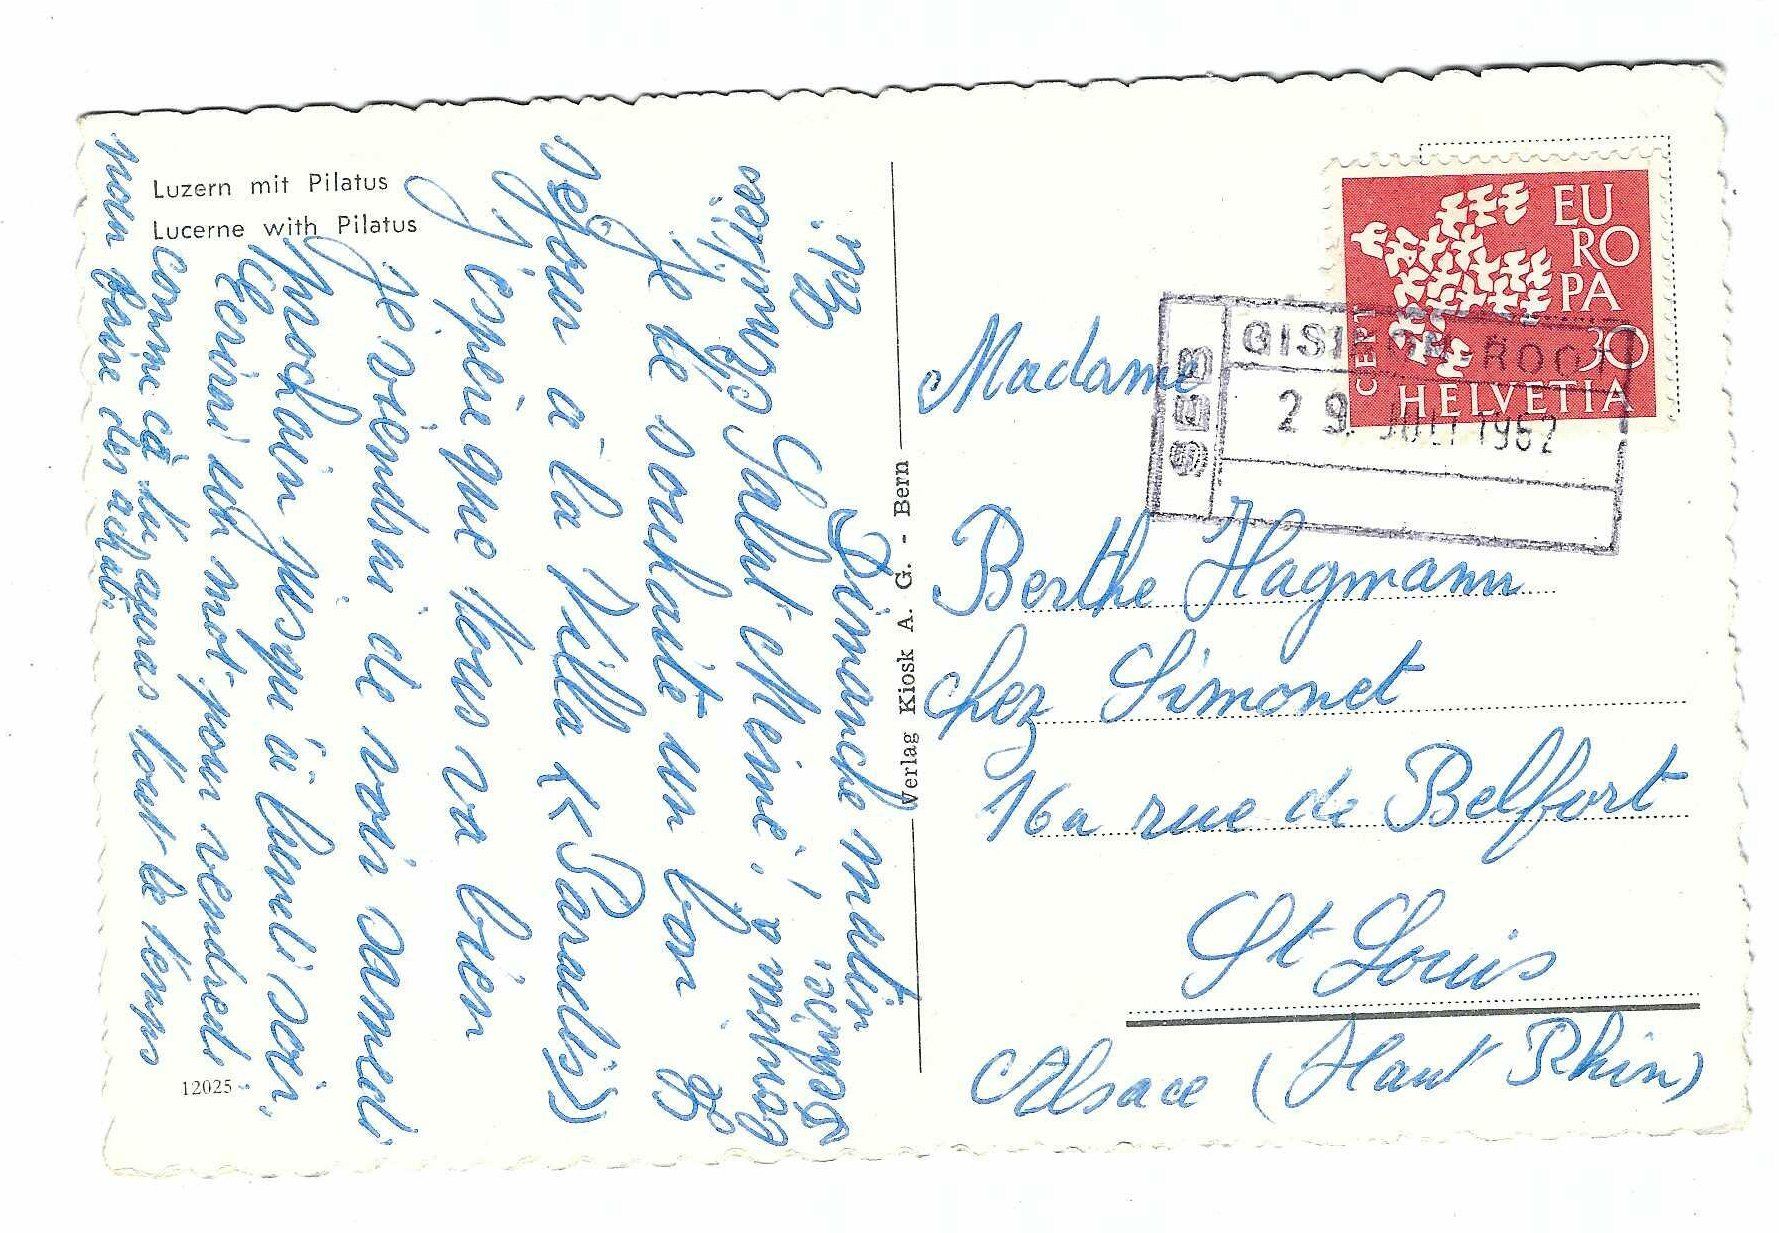 Luzern mit Pilatus
Lucerne with Pilatus
Dimanche matin
Salut Mémé!
Je te souhaite un bon
séjour à la Villa << Paradis>>
J'espère que tous va bien
Je viendrai de voir samedi
prochain jusqu'à lundi soir.
Ecrini un mot pour vendredi
comme çà tu auras tout le temps
pour faire des achats.
Verlag Kiosk A. G. - Bern
12025
EU
RO
PA
30
CEPT
HELVETIA
SBB
GISIKON ROOT
29. JULI 1962
Madame
Berthe Hagmann
chez Simonet
16a rue de Belfort
St Louis
Alsace (Haut Rhin)